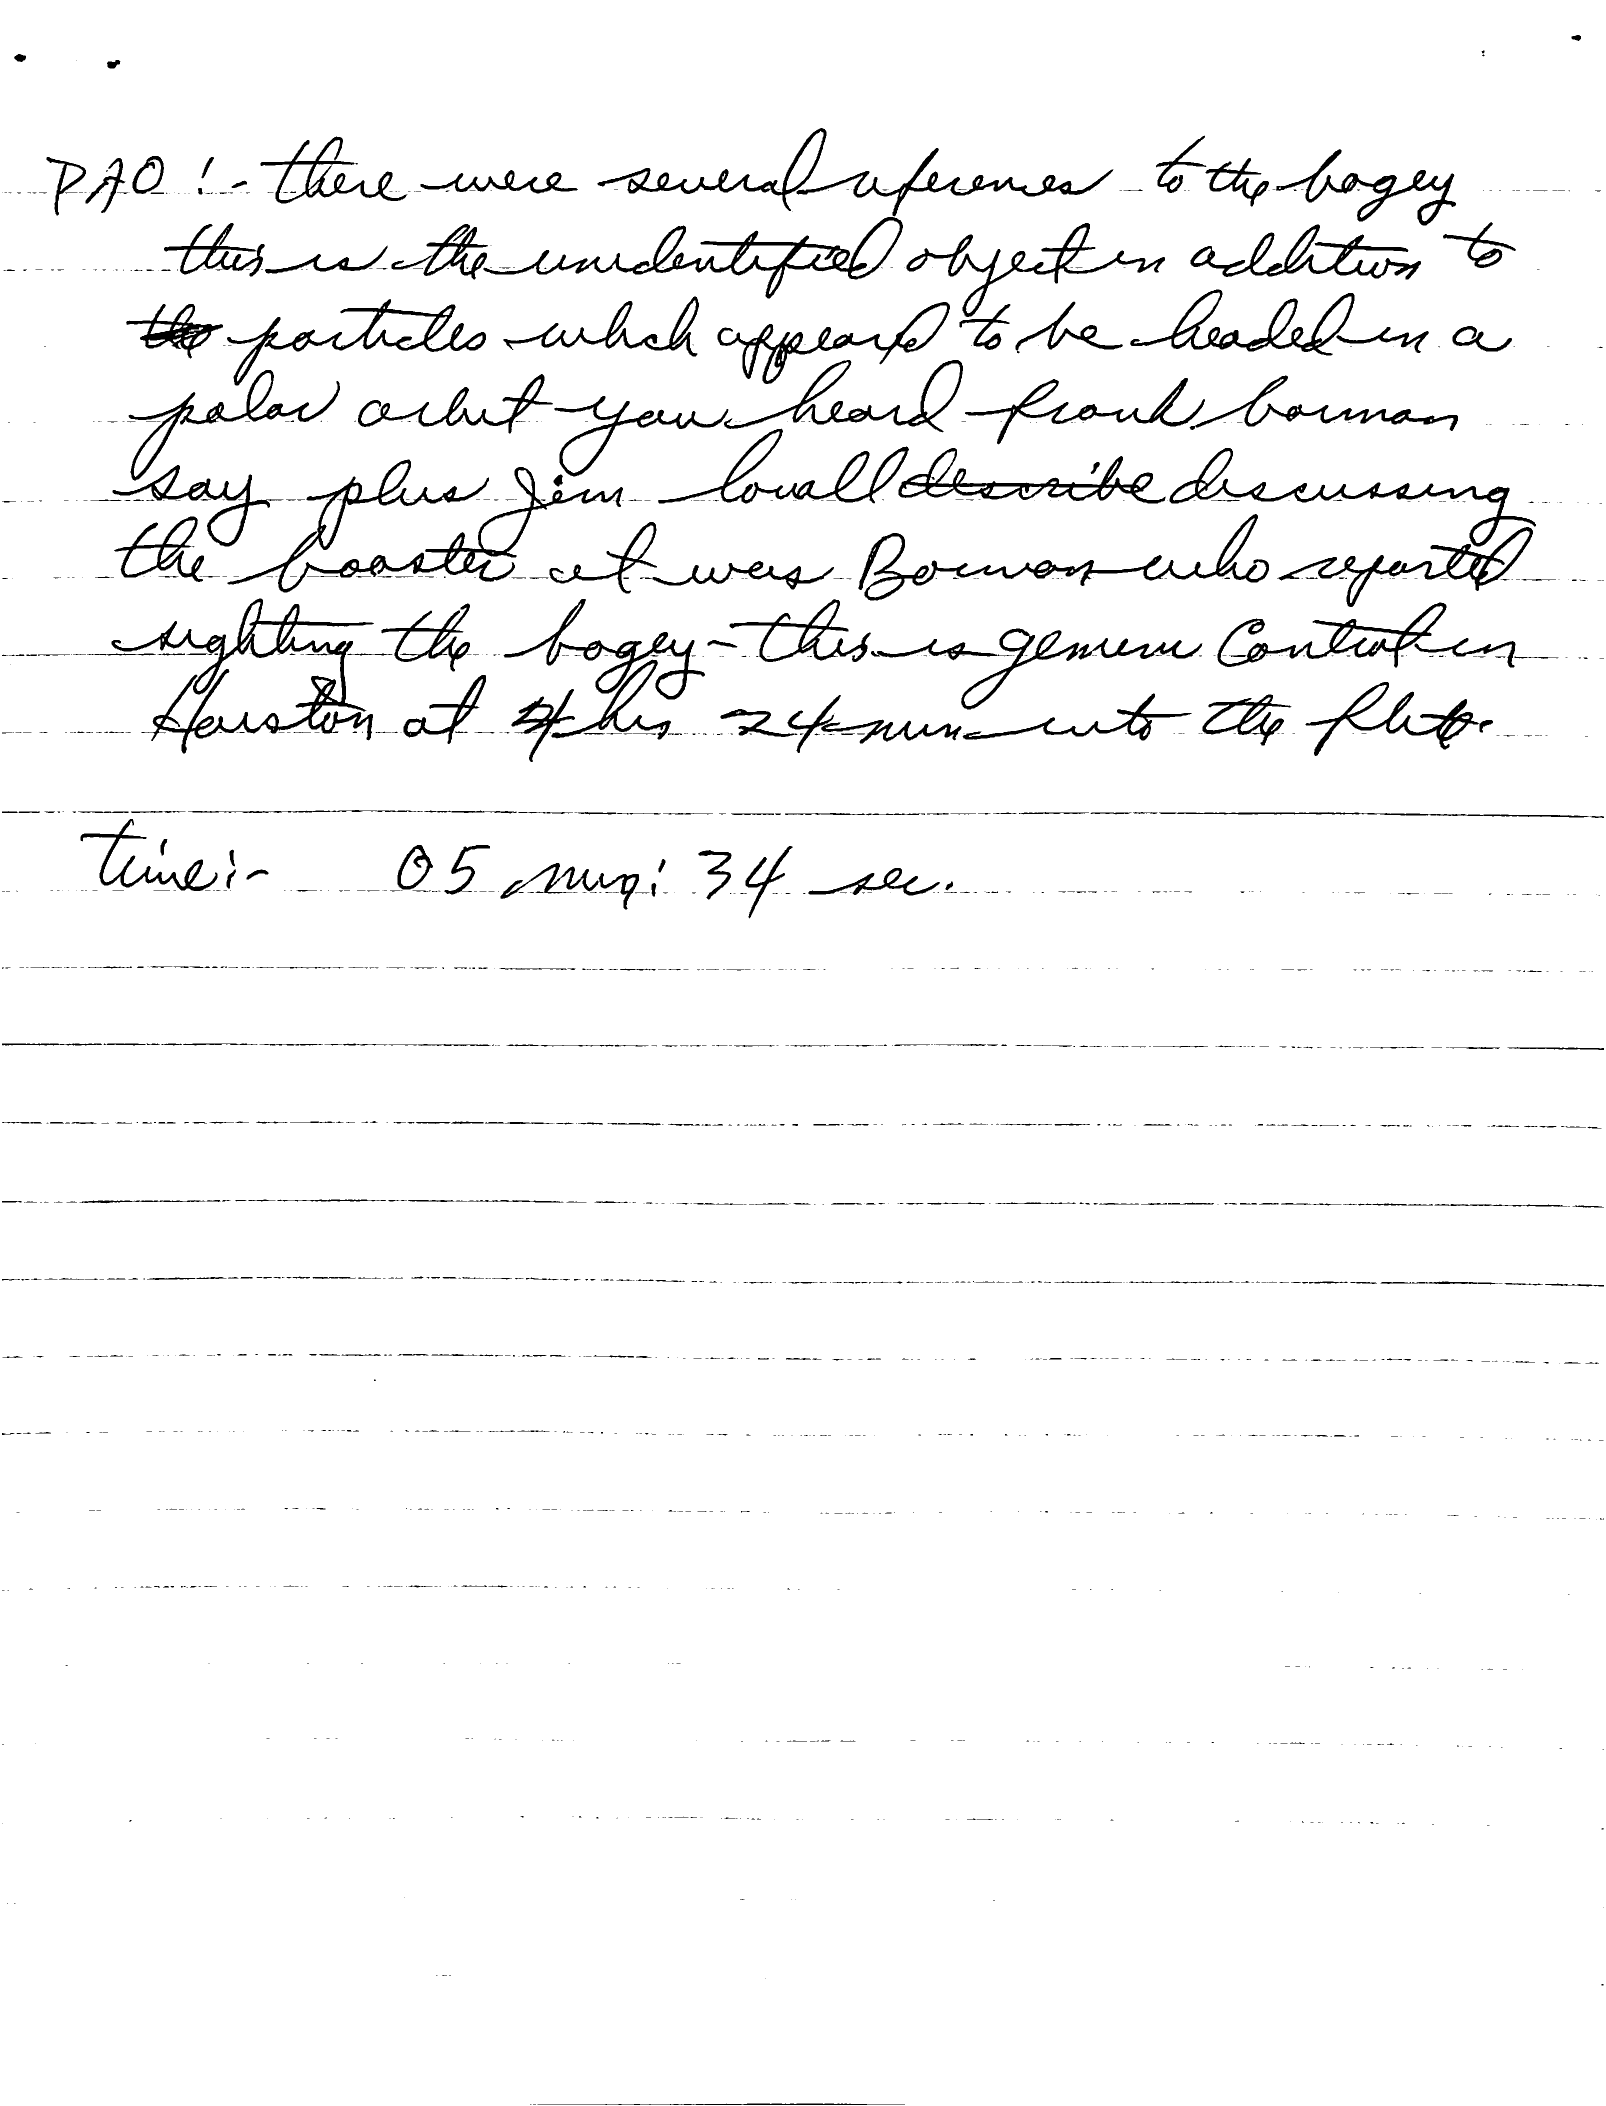 PAO:- there were several references to the bogey
this is the unidentified object in addition to
the particles which appeared to be headed in a
polar orbit you heard frank borman
say plus Jim lovall describe discussing
the booster it was Borman who reported
sighting the bogey - this is gemini Control in
Houston at 4 hrs 24 min into the flite.
time:- 05 min: 34 sec.